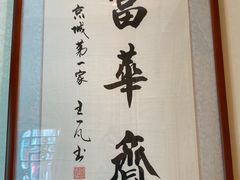 富華齋
京城第一家
王一凡书